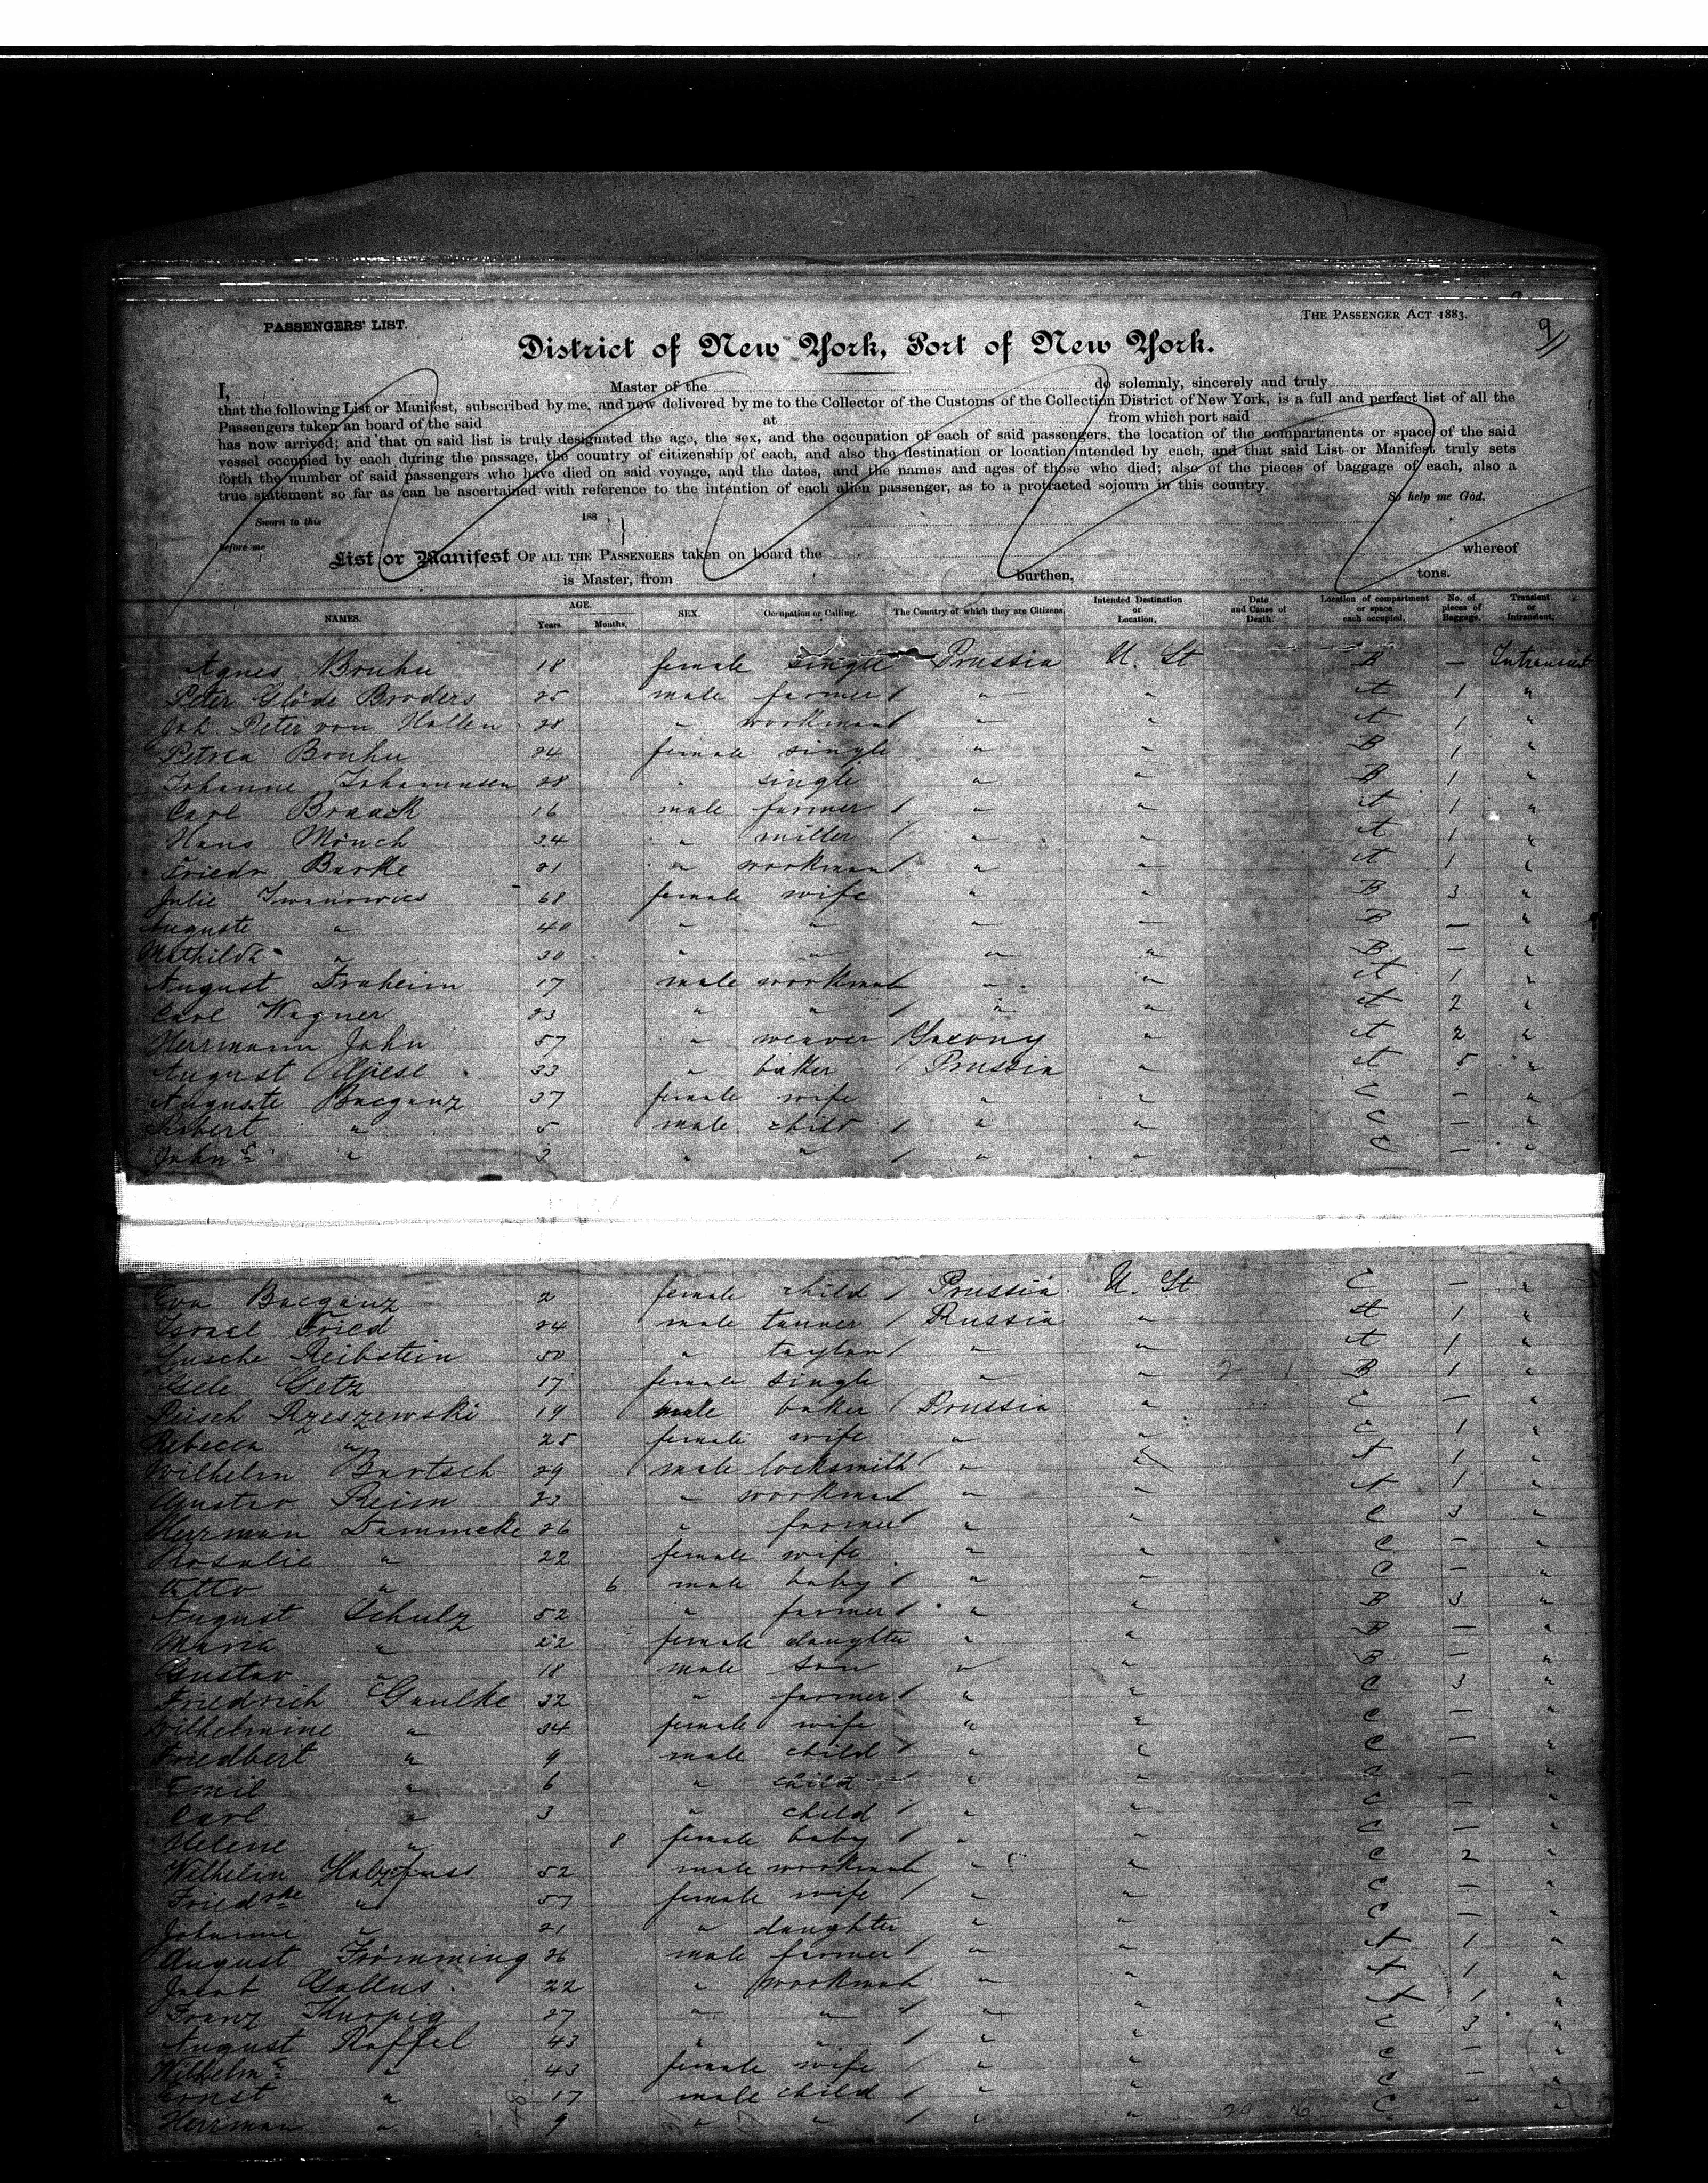 PASSENGERS' LIST.
THE PASSENGER ACT 1883.
9
District of New York, Port of New York.
I, Master of the do solemnly, sincerely and truly
that the following List or Manifest, subscribed by me, and now delivered by me to the Collector of the Customs of the Collection District of New York, is a full and perfect list of all the
Passengers taken an board of the said at from which port said
has now arrived; and that on said list is truly designated the age, the sex, and the occupation of each of said passengers, the location of the compartments or space of the said
vessel occupied by each during the passage, the country of citizenship of each, and also the destination or location intended by each, and that said List or Manifest truly sets
forth the number of said passengers who have died on said voyage, and the dates, and the names and ages of those who died; also of the pieces of baggage of each, also a
true statement so far as can be ascertained with reference to the intention of each alien passenger, as to a protracted sojourn in this country. So help me God.
Sworn to this 188
before me
List or Manifest OF ALL THE PASSENGERS taken on board the whereof
is Master, from burthen, tons.
NAMES. AGE. Years. Months. SEX. Occupation or Calling. The Country of which they are Citizens. Intended Destination or Location. Date and Cause of Death. Location of compartment or space each occupied. No. of pieces of Baggage. Transient or Intransient.
Agnes Bruhn 18 female single Prussia U. St B — Intransient
Peter Glöde Broders 25 male farmer / " " A 1 "
Joh. Peter von Hallen 28 " workman / " " A 1 "
Petrea Bruhn 24 female single " " B 1 "
Johanne Johannsen 28 " single " " B 1 "
Carl Braack 16 male farmer / " " A 1 "
Hans Mönch 34 " miller / " " A 1 "
Friedr Barke 21 " workman / " " A 1 "
Julie Iwanowics 68 female wife " " B 3 "
Auguste " 40 " " " " B — "
Mathilde " 30 " " " " B — "
August Draheim 17 male workman " " A 1 "
Carl Wagner 23 " " " " A 2 "
Herrmann John 57 " weaver / Saxony " A 2 "
August 33 " baker / Prussia " A 5 "
Auguste Bacganz 37 female wife " " C — "
Robert " 5 male child / " " C — "
Joh " 3 " " / " " C — "
Eva Bacganz 2 female child / Prussia U. St C — "
Israel Fried 24 male tanner / Russia " A 1 "
Reibstein 50 " taylor / " " A 1 "
Getz 17 female single " " B 1 "
Rzeszewski 19 male baker / Prussia " C — "
Rebecca " 25 female wife " " C 1 "
Wilhelm Bartsch 29 male locksmith / " " A 1 "
Gustav Reim 23 " workman " " A 1 "
Herrman Dammcke 26 " farmer / " " C 3 "
Rosalie " 22 female wife " " C — "
Otto " 6 male baby / " " C — "
August Schulz 52 " farmer / " " B 3 "
Maria " 22 female daughter " " B — "
Gustav " 18 male son " " B — "
Friedrich Gaulke 32 " farmer / " " C 3 "
Wilhelmine " 34 female wife " " C — "
Friedbert " 9 male child / " " C — "
Emil " 6 " child / " " C — "
Carl " 3 " child / " " C — "
Helene " 8 female baby / " " C — "
Wilhelm 52 male workman " " C 2 "
Friedrke " 57 female wife / " " C — "
Johanne " 21 " daughter " " C — "
August Frömming 26 male farmer / " " A 1 "
Jacob Gallus 22 " workman " " A 1 "
Franz 27 " " / " " A 1 "
August Raffel 43 " " / " " C 3 "
Wilhelme " 43 female wife / " " C — "
Ernst " 17 male child / " " C — "
Herrman " 9 " " / " " C — "